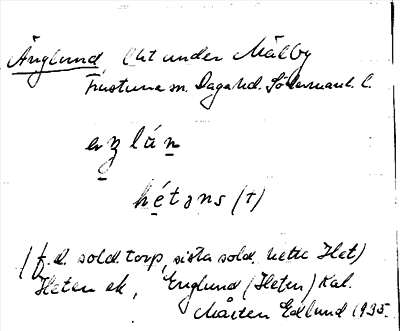 Änglund, lht under Mälby
Frustuna sn. Daga hd. Södermanl. l.
hétəns (t)
(f.d. sold. torp, sista sold. hette Het)
Heten ek, Englund (Heten) Kal.
Mårten Edlund 1935.